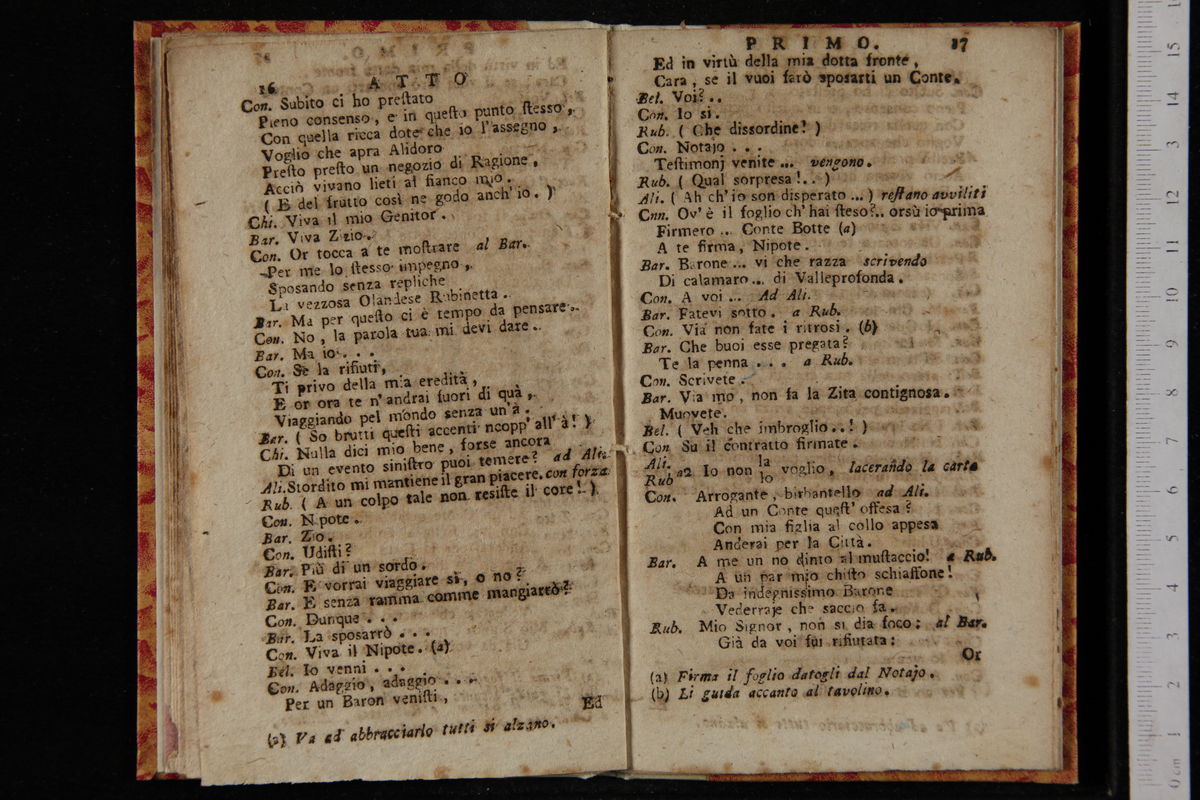 16 ATTO
Con. Subito ci ho preſtato
Pieno consenso, e in queſto punto ſtesso,
Con quella ricca dote che io l'assegno,
Voglio che apra Alidoro
Preſto preſto un negozio di Ragione,
Acciò vivano lieti al fianco mio.
( E del frutto così ne godo anch'io. )
Chi. Viva il mio Genitor.
Bar. Viva Zizio.
Con. Or tocca a te moſtrare al Bar.
Per me lo ſtesso impegno,
Sposando senza repliche
La vezzosa Olandese Rubinetta.
Bar. Ma per queſto ci è tempo da pensare.
Con. No, la parola tua mi devi dare.
Bar. Ma io . . .
Con. Se la rifiuti,
Ti privo della mia eredità,
E or ora te n'andrai fuori di quà,
Viaggiando pel mondo senza un'à.
Bar. ( So brutti queſti accenti ncopp'all'à! )
Chi. Nulla dici mio bene, forse ancora
Di un evento siniſtro puoi temere? ad Ali.
Ali. Stordito mi mantiene il gran piacere. con forza
Rub. ( A un colpo tale non resiſte il core! )
Con. Nipote.
Bar. Zio.
Con. Udiſti?
Bar. Più di un sordo.
Con. E vorrai viaggiare sì, o no?
Bar. E senza ramma comme mangiarrò?
Con. Dunque . . .
Bar. La sposarrò . . .
Con. Viva il Nipote. (a)
Bel. Io venni . . .
Con. Adaggio, adaggio . . .
Per un Baron veniſti,
Ed
(a) Va ad abbracciarlo tutti si alzano.
PRIMO. 17
Ed in virtù della mia dotta fronte,
Cara, se il vuoi farò sposarti un Conte.
Bel. Voi? ..
Con. Io sì.
Rub. ( Che dissordine! )
Con. Notajo . . .
Teſtimonj venite ... vengono.
Rub. ( Qual sorpresa!.. )
Ali. ( Ah ch'io son disperato ... ) reſtano avviliti
Cnn. Ov'è il foglio ch'hai ſteso?.. orsù io prima
Firmero ... Conte Botte (a)
A te firma, Nipote.
Bar. Barone ... vi che razza scrivendo
Di calamaro ... di Valleprofonda.
Con. A voi ... Ad Ali.
Bar. Fatevi sotto. a Rub.
Con. Via non fate i ritrosi. (b)
Bar. Che buoi esse pregata?
Te la penna . . . a Rub.
Con. Scrivete.
Bar. Via mo, non fa la Zita contignosa.
Muovete.
Bel. ( Veh che imbroglio..! )
Con Su il contratto firmate.
Ali. la
Rub a2 Io non lo voglio, lacerando la carta
Con. Arrogante, birbantello ad Ali.
Ad un Conte queſt'offesa?
Con mia figlia al collo appesa
Anderai per la Città.
Bar. A me un no dinto al muſtaccio! a Rub.
A un par mio chiſto schiaffone!
Da indegnissimo Barone
Vederraje che saccio fa.
Rub. Mio Signor, non si dia foco: al Bar.
Già da voi fui rifiutata:
Or
(a) Firma il foglio datogli dal Notajo.
(b) Li guida accanto al tavolino.